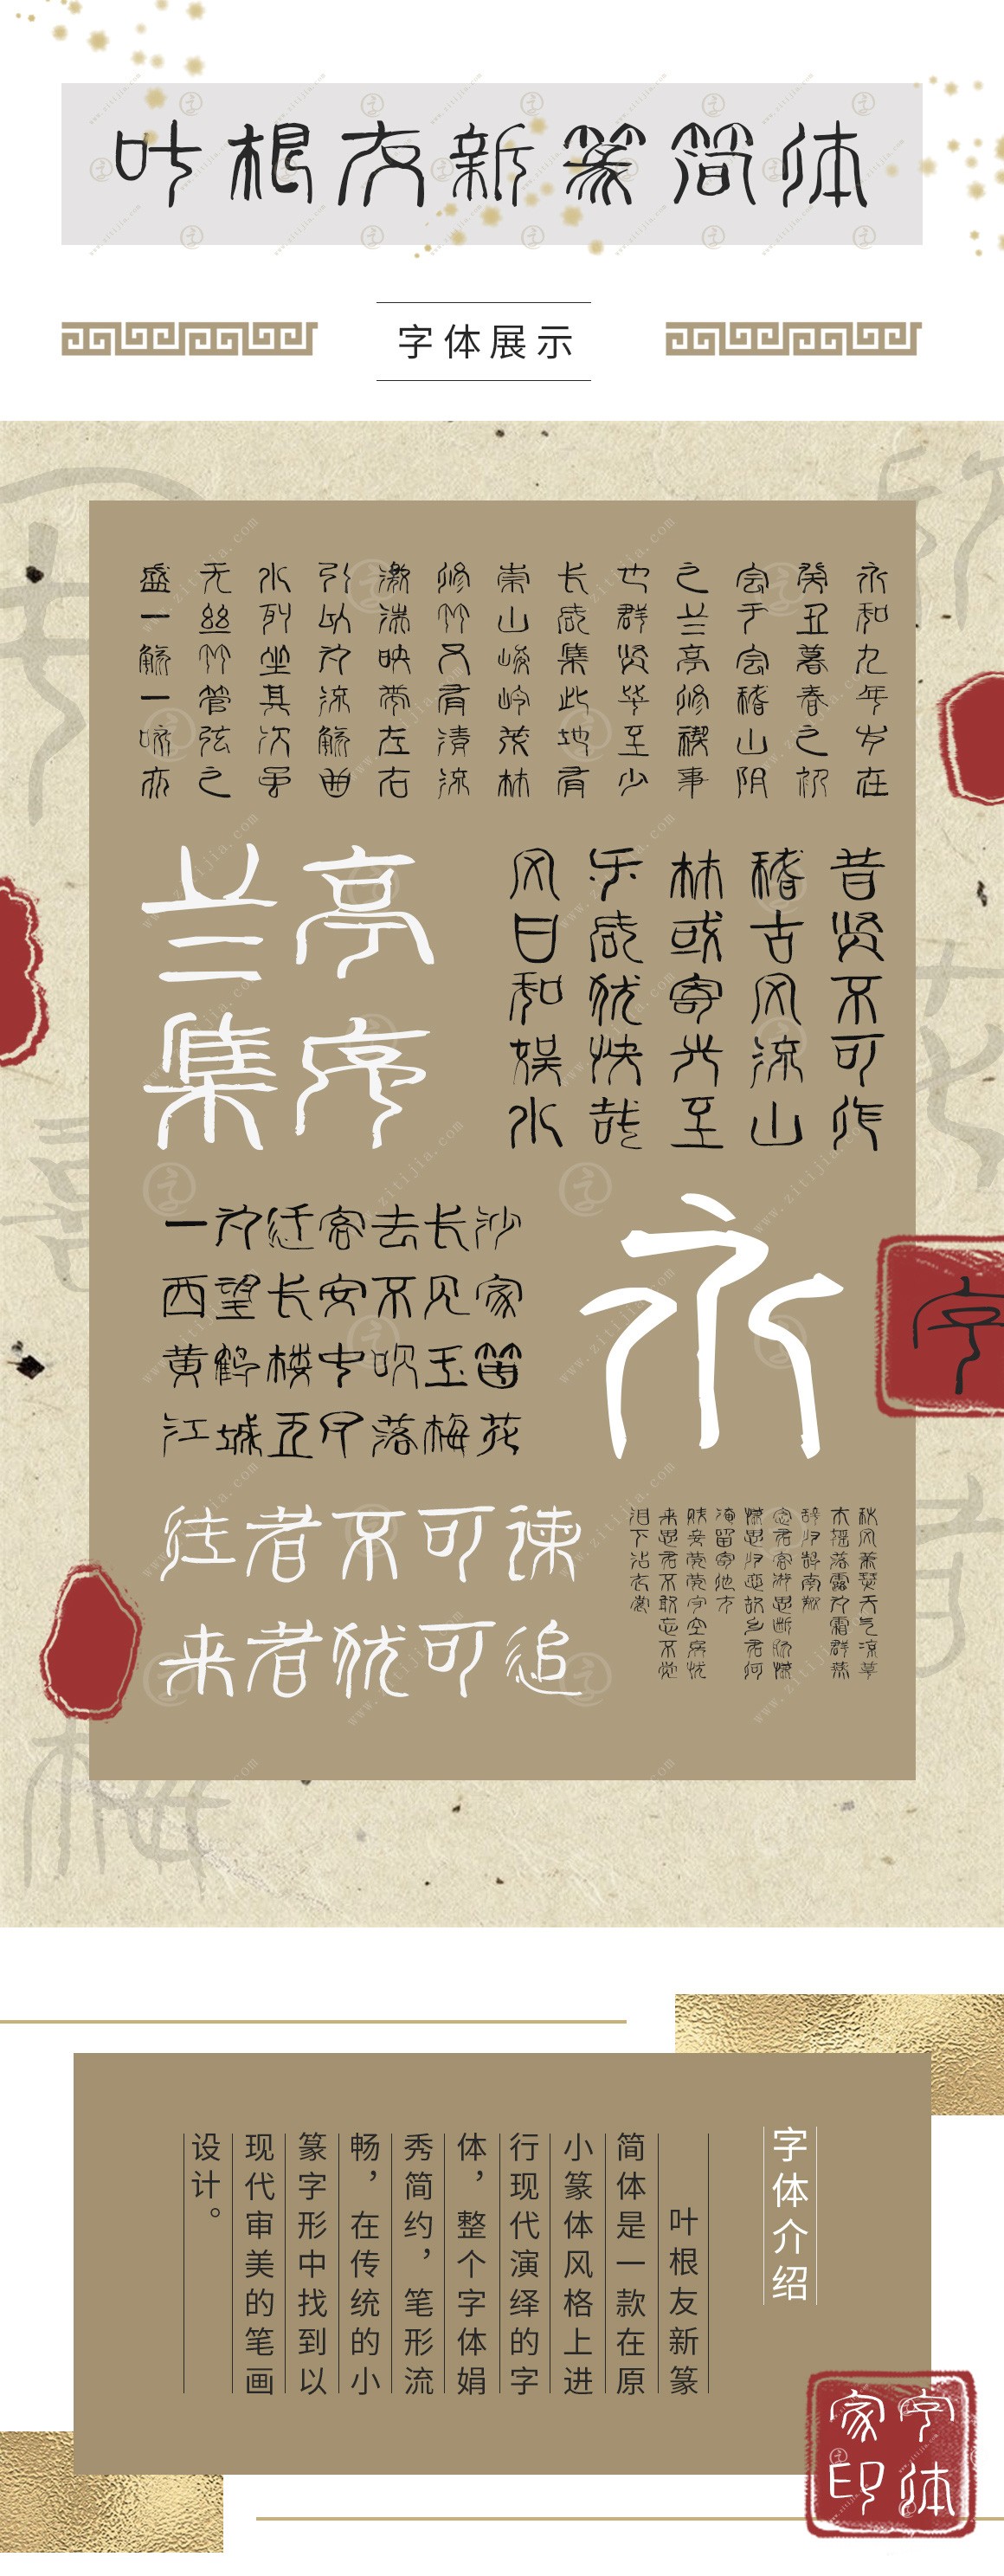 叶根友新篆简体
字体展示
永和九年岁在
癸丑暮春之初
会于会稽山阴
之兰亭修禊事
也群贤毕至少
长咸集此地有
崇山峻岭茂林
修竹又有清流
激湍映带左右
引以为流觞曲
水列坐其次虽
无丝竹管弦之
盛一觞一咏亦
兰亭
集序
昔贤不可作
稽古风流山
林或寄兴至
乐咸犹快哉
风日和娱水
一为迁客去长沙
西望长安不见家
黄鹤楼中吹玉笛
江城五月落梅花
永
字
往者不可谏
来者犹可追
秋风萧瑟天气凉草
木摇落露为霜群燕
辞归鹄南翔
念君客游思断肠慊
慊思归恋故乡君何
淹留寄他方
贱妾茕茕守空房忧
来思君不敢忘不觉
泪下沾衣裳
字体介绍
叶根友新篆
简体是一款在原
小篆体风格上进
行现代演绎的字
体，整个字体娟
秀简约，笔形流
畅，在传统的小
篆字形中找到以
现代审美的笔画
设计。
字体
家印
www.zitijia.com